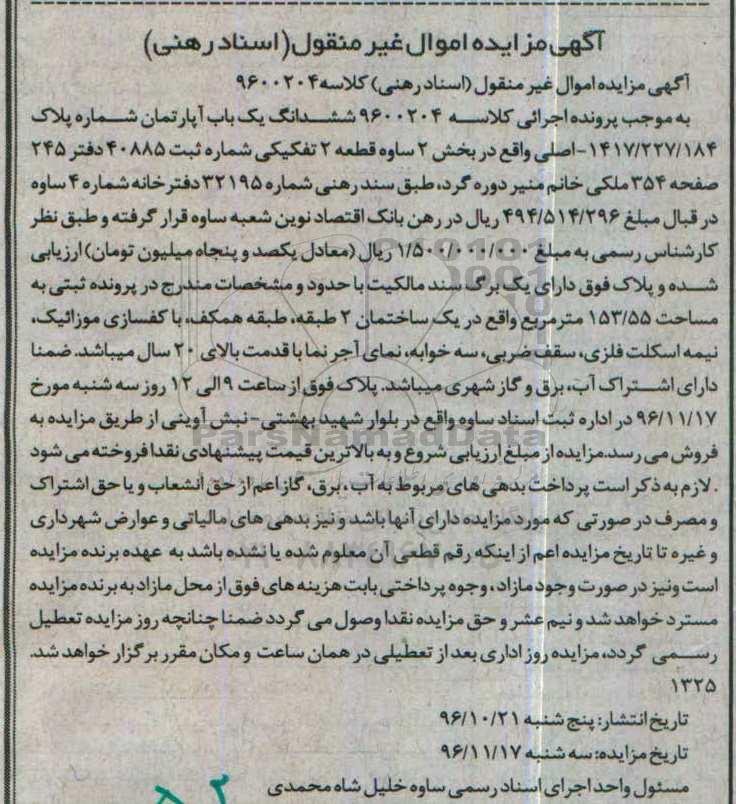 آگهی مزایده اموال غیر منقول (اسناد رهنی)
آگهی مزایده اموال غیر منقول (اسناد رهنی) کلاسه ۹۶۰۰۲۰۴
به موجب پرونده اجرائی کلاسه ۹۶۰۰۲۰۴ ششدانگ یک باب آپارتمان شماره پلاک
۱۴۱۷/۲۲۷/۱۸۴-اصلی واقع در بخش ۲ ساوه قطعه ۲ تفکیکی شماره ثبت ۴۰۸۸۵ دفتر ۲۴۵
صفحه ۳۵۴ ملکی خانم منیر دوره گرد، طبق سند رهنی شماره ۳۲۱۹۵ دفترخانه شماره ۴ ساوه
در قبال مبلغ ۴۹۴/۵۱۴/۲۹۶ ریال در رهن بانک اقتصاد نوین شعبه ساوه قرار گرفته و طبق نظر
کارشناس رسمی به مبلغ ۱/۵۰۰/۰۰۰/۰۰۰ ریال (معادل یکصد و پنجاه میلیون تومان) ارزیابی
شده و پلاک فوق دارای یک برگ سند مالکیت با حدود و مشخصات مندرج در پرونده ثبتی به
مساحت ۱۵۳/۵۵ مترمربع واقع در یک ساختمان ۲ طبقه، طبقه همکف، با کفسازی موزائیک،
نیمه اسکلت فلزی، سقف ضربی، سه خوابه، نمای آجر نما با قدمت بالای ۲۰ سال میباشد. ضمنا
دارای اشتراک آب، برق و گاز شهری میباشد. پلاک فوق از ساعت ۹ الی ۱۲ روز سه شنبه مورخ
۹۶/۱۱/۱۷ در اداره ثبت اسناد ساوه واقع در بلوار شهید بهشتی-نبش آوینی از طریق مزایده به
فروش می رسد.مزایده از مبلغ ارزیابی شروع و به بالاترین قیمت پیشنهادی نقدا فروخته می شود
. لازم به ذکر است پرداخت بدهی های مربوط به آب، برق، گاز اعم از حق انشعاب و یا حق اشتراک
و مصرف در صورتی که مورد مزایده دارای آنها باشد و نیز بدهی های مالیاتی و عوارض شهرداری
و غیره تا تاریخ مزایده اعم از اینکه رقم قطعی آن معلوم شده یا نشده باشد به عهده برنده مزایده
است و نیز در صورت وجود مازاد، وجوه پرداختی بابت هزینه های فوق از محل مازاد به برنده مزایده
مسترد خواهد شد و نیم عشر و حق مزایده نقدا وصول می گردد ضمنا چنانچه روز مزایده تعطیل
رسمی گردد، مزایده روز اداری بعد از تعطیلی در همان ساعت و مکان مقرر برگزار خواهد شد.
۱۳۲۵
تاریخ انتشار: پنج شنبه ۹۶/۱۰/۲۱
تاریخ مزایده: سه شنبه ۹۶/۱۱/۱۷
مسئول واحد اجرای اسناد رسمی ساوه خلیل شاه محمدی
ParsNamadData